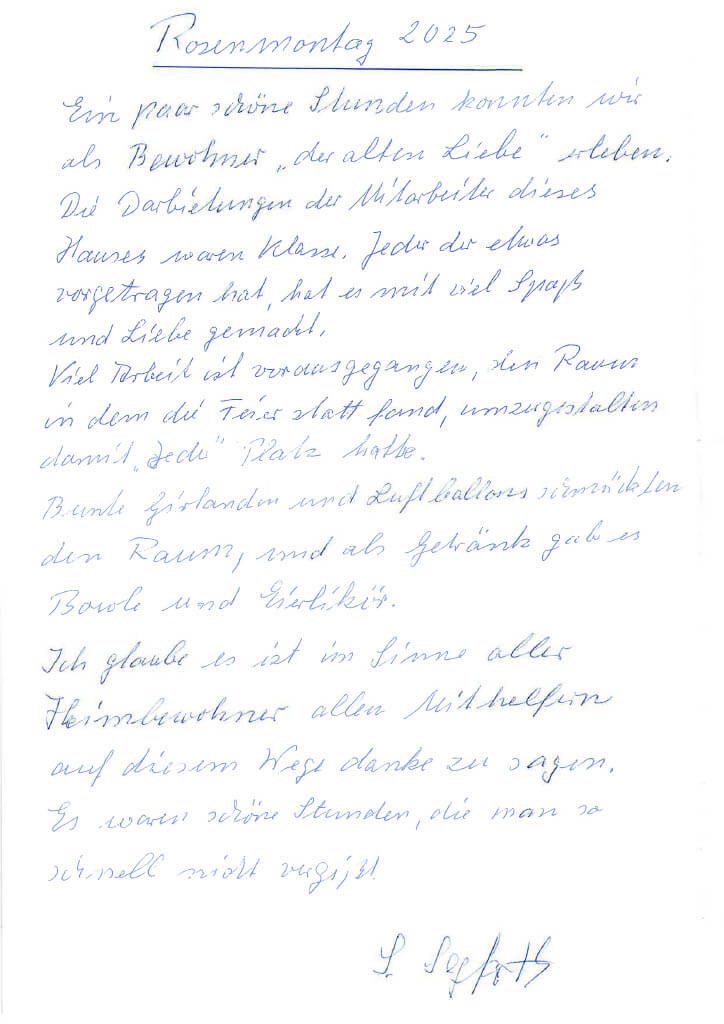 Rosenmontag 2025
Ein paar schöne Stunden konnten wir
als Bewohner „der alten Liebe" erleben.
Die Darbietungen der Mitarbeiter dieses
Hauses waren Klasse. Jeder der etwas
vorgetragen hat, hat es mit viel Spaß
und Liebe gemacht.
Viel Arbeit ist vorausgegangen, den Raum
in dem die Feier statt fand, umzugestalten
damit „Jeder" Platz hatte.
Bunte Girlanden und Luftballons schmückten
den Raum, und als Getränk gab es
Bowle und Eierlikör.
Ich glaube es ist im Sinne aller
Heimbewohner allen Mithelfern
auf diesem Wege danke zu sagen.
Es waren schöne Stunden, die man so
schnell nicht vergißt.
S.